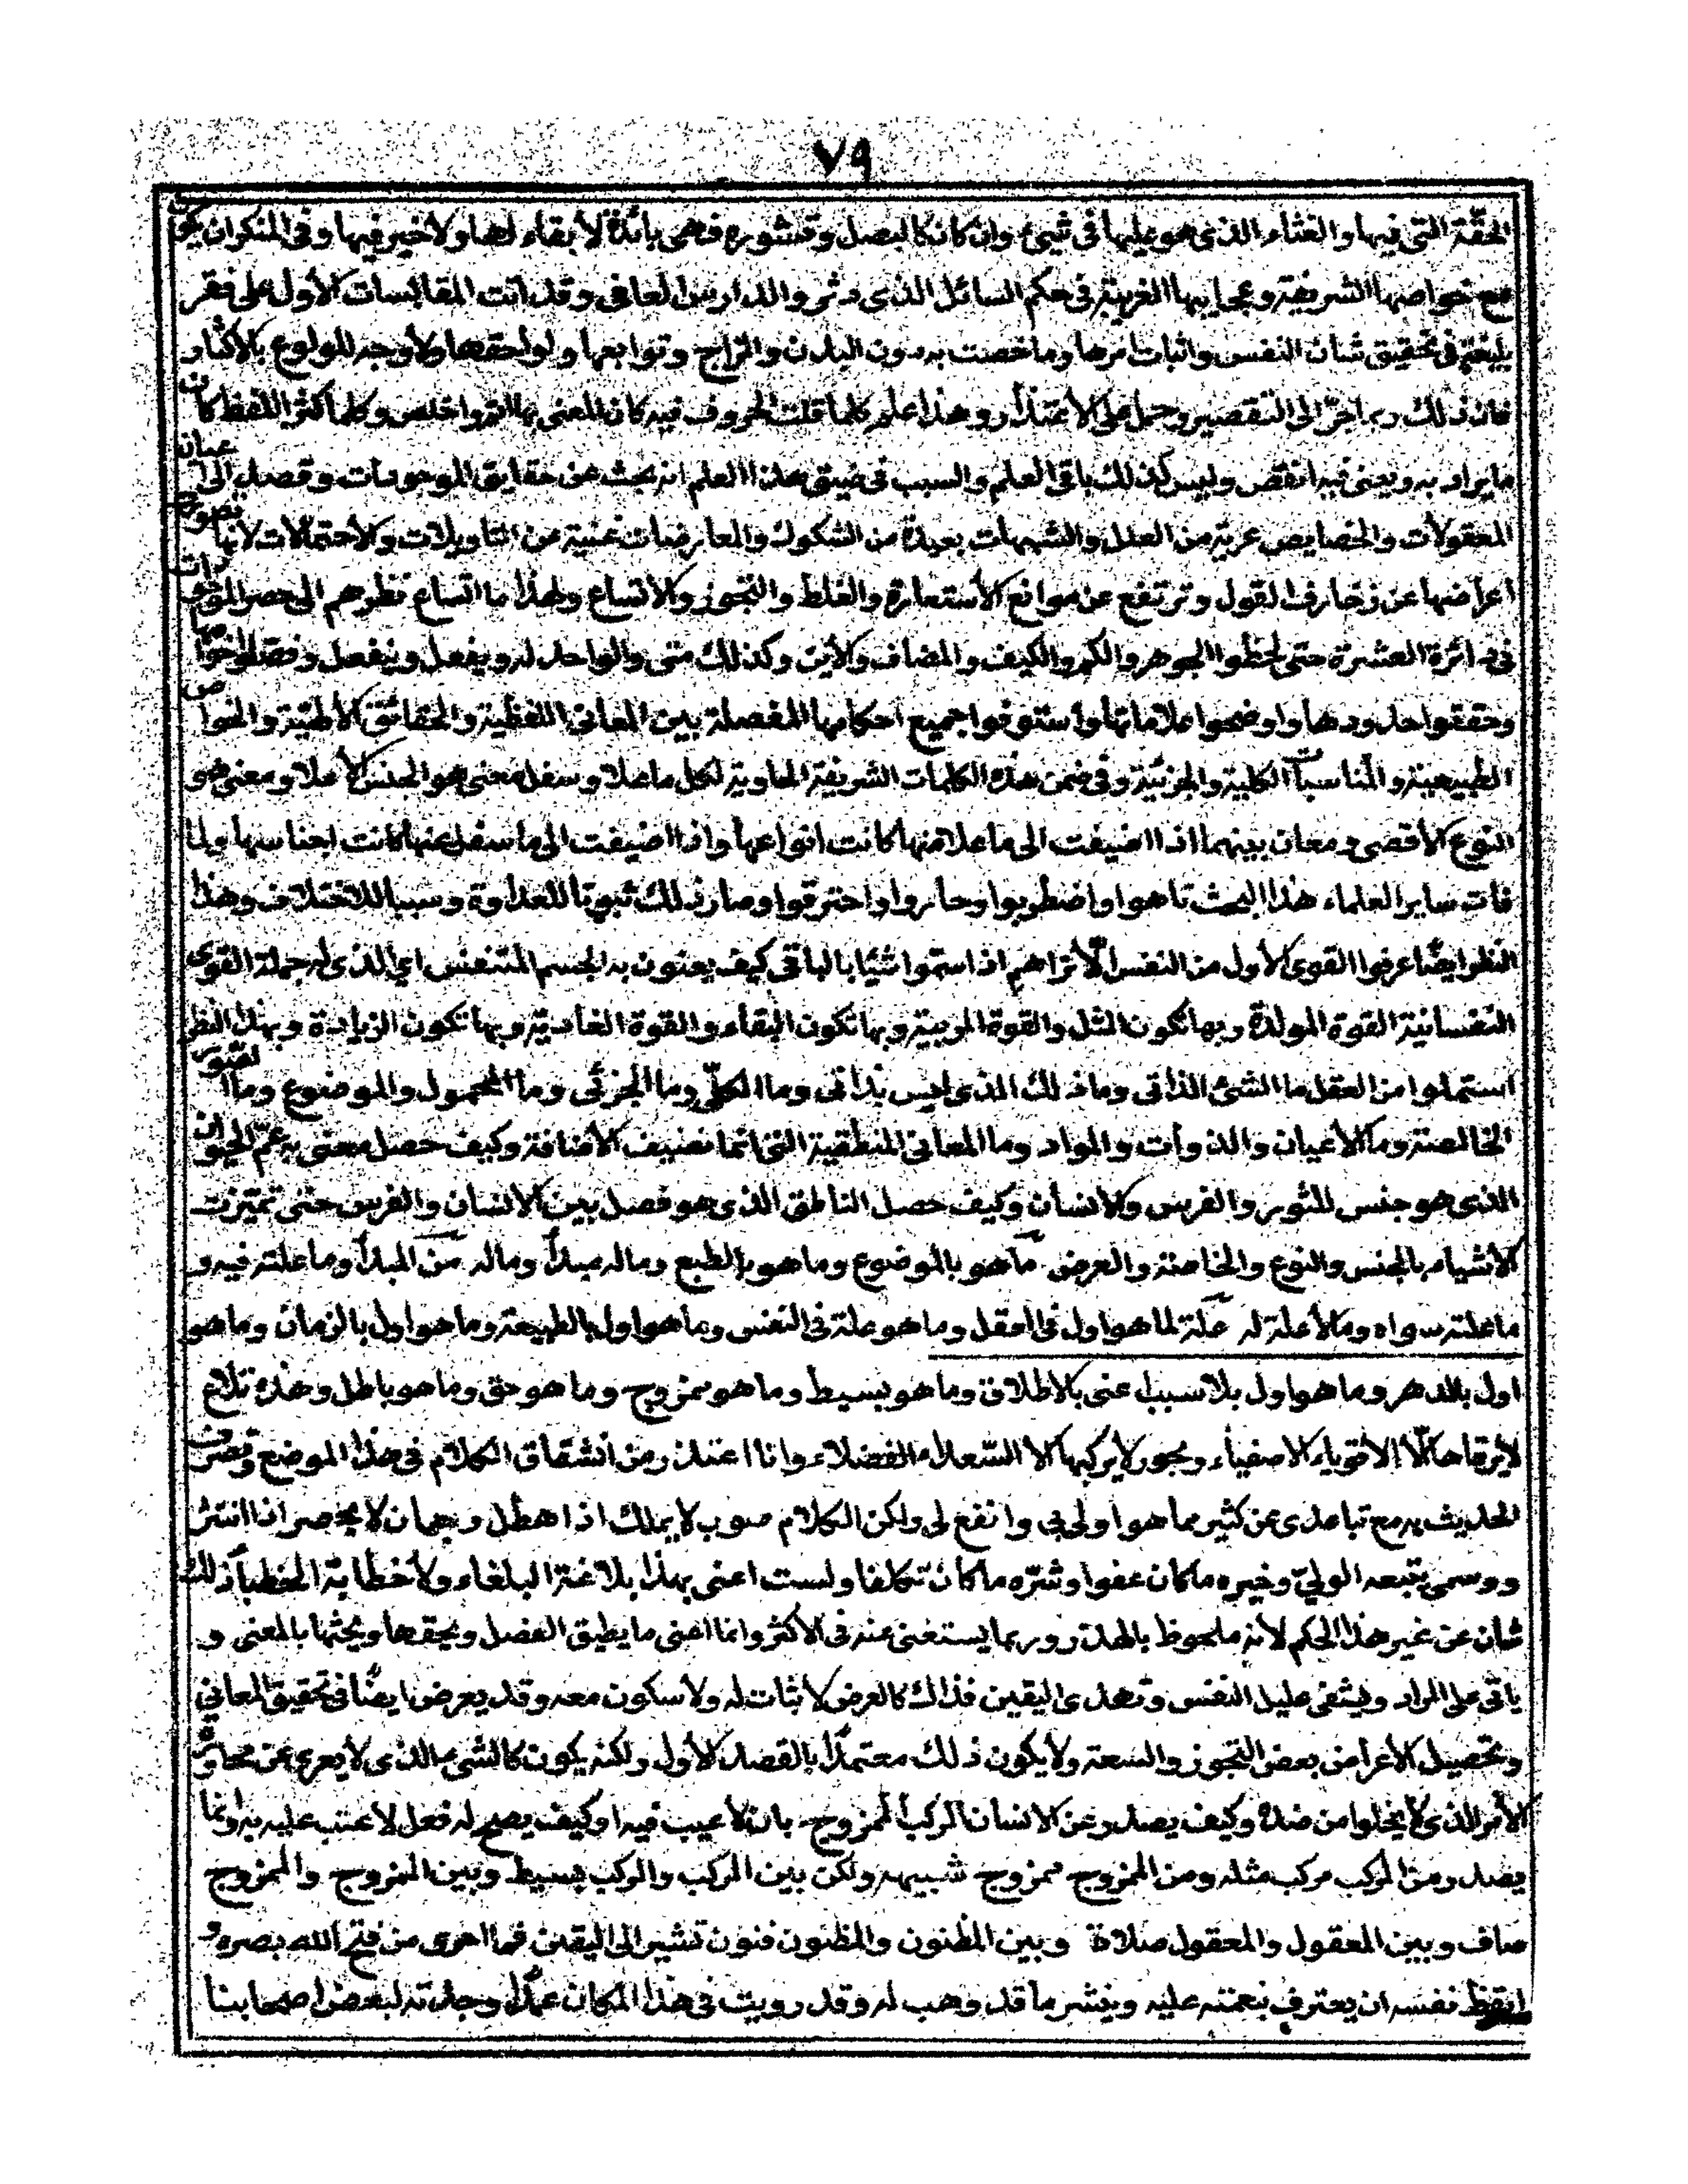 ٧٩
الحقّة التي فيها والغثاء الذي هو عليها في شيء وان كان كالبصل وقشوره فهي بائدة لا بقاء لها ولا خير فيها وفي المنكر ان يكون
مع خواصها الشريفة وعجايبها الغريبة في حكم السائل الذي دثر والدارس العافي وقد اتت المقابسات الأول على فقر
بليغة في تحقيق شان النفس واثبات امرها وما خصت به دون البدن والمزاج وتوابعها ولواحقها ولا وجه للولوع بالاكثار
فان ذلك ربما اجرّ الى التقصير وحمل على الاعتذار وهذا علم كلما قلت الحروف فيه كان المعنى بها اتم واخلص وكلما كثر اللفظ كان
ما يراد به ويعنى فيه انقص وليس كذلك باقي العلم والسبب في ضيق هذا العلم انه بحث عن حقايق الموجودات وقصد الى اعيان
المعقولات والخصايص عرية من العلل والشبهات بعيدة من الشكوك والمعارضات غنية عن التاويلات والاحتمالات لانها تصون
اعراضها عن زخارف القول وترتفع عن موانع الأستعارة والغلط والتجوز والاتساع ولهذا ما اتساع نظرهم الى حصر الموجودات
في دائرة العشرة حتى لحظوا الجوهر والكم والكيف والمضاف والأين وكذلك متى والواحد له ويفعل وينفعل وفصّلوا خواصها
وحققوا حدودها واوضحوا علاماتها واستوفوا جميع احكامها المفصلة بين المعاني اللفظية والحقائق الالهيّة والخواص
الطبيعية والمناسبات الكلية والجزئية وفي ضمن هذه الكلمات الشريفة الحاوية لكل ما علا وسفل معنى هو الجنس الأعلا ومعنى هو
النوع الأقصى ومعان بينهما اذا اضيفت الى ما علا منها كانت انواعها واذا اضيفت الى ما سفل عنها كانت اجناسها ولما
فات ساير العلماء هذا البحث تاهوا واضطربوا وحاروا واحترقوا وصار ذلك ثبوتا للعداوة وسببا للاختلاف وهذا
النظر ايضًا عرفوا القوى الأول من النفس الّا تراهم اذا ستموا شيًا بالباقي كيف يعنون به الجسم المتنفس اي الذي له جملة القوى
النفسانية القوة المولدة وبها تكون المثل والقوة المربية وبها تكون البقاء والقوة الغاذية وبها تكون الزيادة وبهذا النظر
استملوا من العقل ما الشئ الذاتي وما ذلك الذي ليس بذاتي وما الكلّي وما الجزئي وما المحمول والموضوع وما الصور
الخالصة وما الاعيان والذوات والمواد وما المعاني المنطقية التي انما تضيف الأضافة وكيف حصل معنى به عمّ الحيوان
الذي هو جنس للثور والفرس والانسان وكيف حصل الناطق الذي هو فصل بين الانسان والفرس حتى تميّزت
الأشياء بالجنس والنوع والخاصة والعرض ما هو بالموضوع وما هو بالطبع وما له مبدأ وما له من المبدأ وما علته فيه و
ما علته سواه وما لا علة له علة لما هو اول في العقل وما هو علة في النفس وما هو اول بالطبيعة وما هو اول بالزمان وما هو
اول بالدهر وما هو اول بلا سبب عنى بالاطلاق وما هو بسيط وما هو ممزوج وما هو حق وما هو باطل وهذه تلاع
لا يرقاها الّا الاقوياء الاصفياء وبحور لا يركبها الا السّعداء الفضلاء وانا اعتذر من انشقاق الكلام في هذا الموضع وتصرف
الحديث به مع تباعدى عن كثير مما هو اولى بي وانفع لي ولكن الكلام صوب لا يملك اذا هطل وجمان لا يحصر اذا انتثر
ووسمي يتبعه الوليّ وخيره ما كان عفوا وشرّه ما كان تكلفا ولست اعنى بهذا بلاغة البلغاء ولا خطابة الخطباء ذلك
شان عن غير هذا الحكم لأنه ملحوظ بالهذر وربما يستغنى عنه في الاكثر وانما اعني ما يطبق الفصل ويحققها ويحثها بالمعنى و
ياتي على المراد ويشفي غليل النفس وتهدى اليقين فذاك كالعرض لا ثبات له ولا سكون معه وقد يعرض ايضًا في تحقيق المعاني
وتحصيل الاغراض بعض التجوز والسعة ولا يكون ذلك معتمدًا بالقصد الأول ولكنه يكون كالشيء الذي لا يعرى عن مجاورة
الأمر الذي لا يخلوا من ضده وكيف يصدر عن الانسان المركب الممزوج بان لا عيب فيه او كيف يصح له فعل لا عتب عليه به وانما
يصدر من المركب مركب مثله ومن الممزوج ممزوج شبيهه ولكن بين المركب والمركب بسيط وبين الممزوج والممزوج
صاف وبين المعقول والمعقول صلاة وبين المظنون والمظنون فنون تشير الى اليقين فما احرى من فتح الله بصره و
ايقظ نفسه ان يعترف بنعمته عليه وينشر ما قد وهب له وقد رويت في هذا المكان عمدًا وجدته لبعض اصحابنا